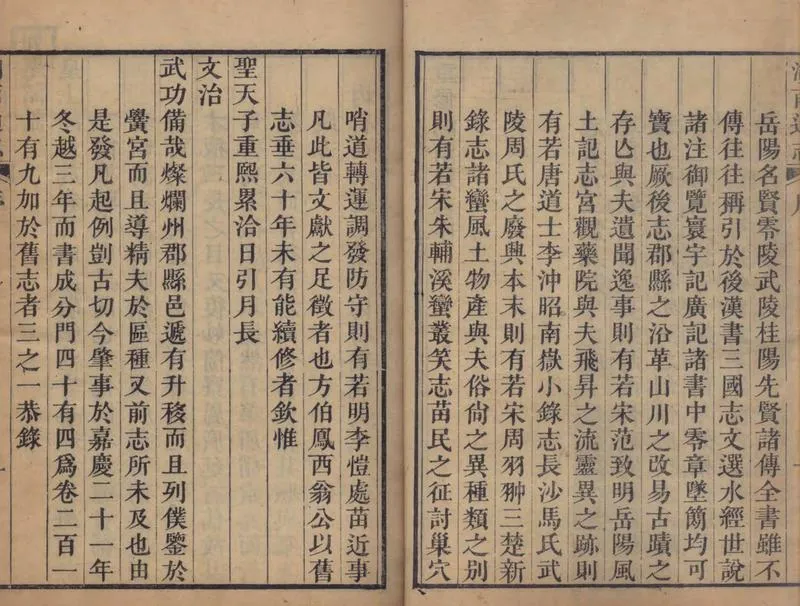 岳陽名賢零陵武陵桂陽先賢諸傳全書雖不
傳往往稱引於後漢書三國志文選水經世說
諸注御覽寰宇記廣記諸書中零章墜簡均可
寶也厥後志郡縣之沿革山川之改易古蹟之
存亾與夫遺聞逸事則有若宋范致明岳陽風
土記志宮觀藥院與夫飛昇之流靈異之跡則
有若唐道士李沖昭南嶽小錄志長沙馬氏武
陵周氏之廢興本末則有若宋周羽翀三楚新
錄志諸蠻風土物產與夫俗尙之異種類之別
則有若宋朱輔溪蠻叢笑志苗民之征討巢穴
哨道轉運調發防守則有若明李愷處苗近事
凡此皆文獻之足徵者也方伯鳳西翁公以舊
志垂六十年未有能續修者欽惟
聖天子重熙累洽日引月長
文治
武功備哉燦爛州郡縣邑遞有升移而且列僕鑒於
黌宮而且導精夫於區種又前志所未及也由
是發凡起例剴古切今肇事於嘉慶二十一年
冬越三年而書成分門四十有四爲卷二百一
十有九加於舊志者三之一恭錄